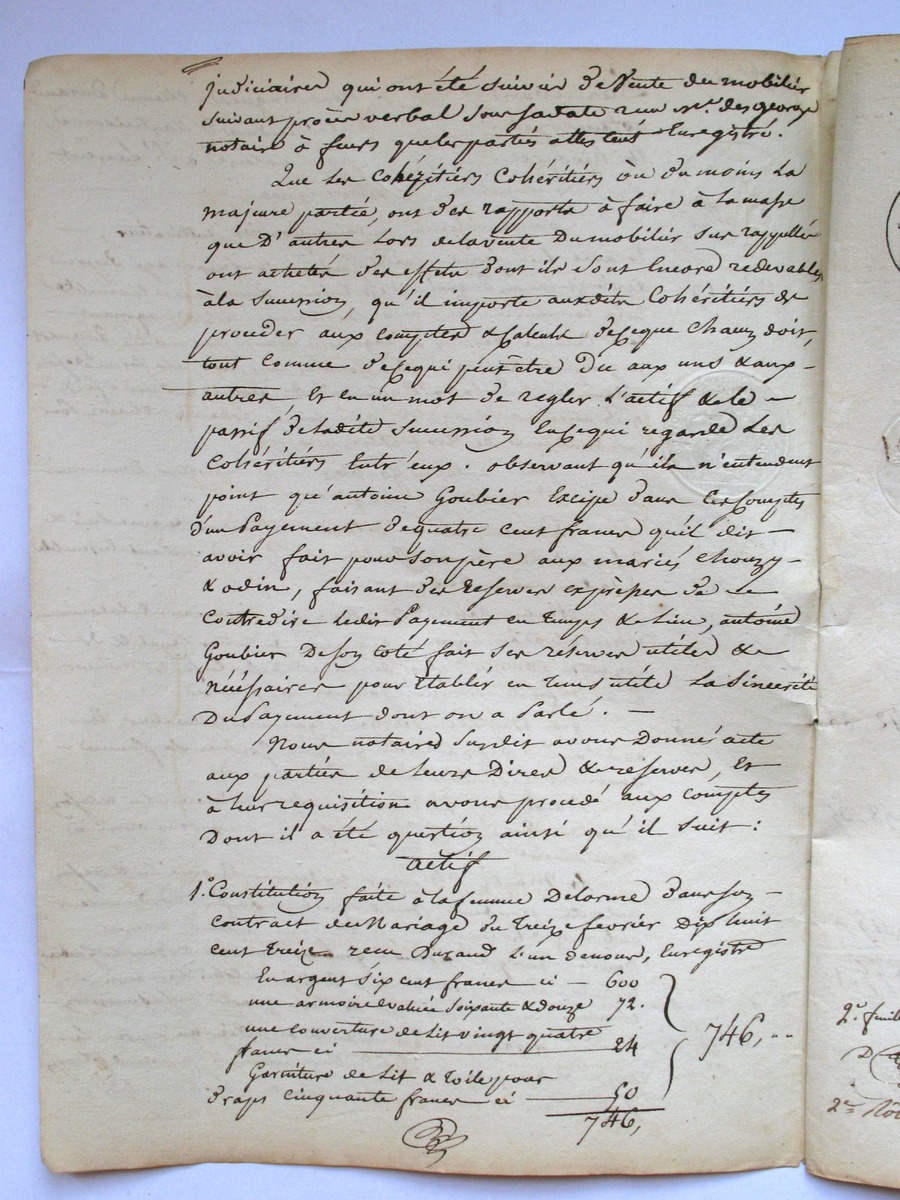 judiciaires qui ont été suivies de Vente du mobilier
suivant procès verbal sous sa date recu Mr. des georges
notaire à feurs que les parties attestent Enregistré.
Que les Cohézitiers Cohéritiers ou du moins La
majeure partie, ont des rapports à faire à la masse
que D'autres Lors de la vente Du mobilier sus rappellé
ont achetés des effets dont ils sont Encore redevables
à la succession, qu'il importe auxdits Cohéritiers de
proceder aux comptes & Calculs de ce que Chacun doit,
tout comme de ce qui peut être Du aux uns & aux
autres, Et en un mot de regler L'actif & le
passif de ladite succession En ce qui regarde Les
Cohéritiers Entr'eux. observant qu'ils n'entendent
point qu'antoine Goubier Excipe dans Les Comptes
d'un Payement de quatre cent francs qu'il dit
avoir fait pour son père aux mariés Chouzy
& odin, faisant des Reserves expresses de
Contredire ledit Payement en temps & Lieu, antoine
Goubier De son coté fait ses réserves utiles &
nécéssaires pour Etablir en tems utile La Sincerité
Du Payement dont on a Parlé. —
Nous notaires Susdit avons Donné acte
aux parties de leurs Dires & reserves, Et
à leur requisition avons procédé aux Comptes
Dont il a été question ainsi qu'il suit:
actif
1.° Constitution faite à la femme Delorme Dans son
contract de Mariage du treize fevrier Dix huit
cent treize recu Durand L'un de nous, Enregistré
En argent six cent francs ci — 600
une armoire évaluée soixante & douze 72.
une couverture de Lit vingt quatre
francs ci — 24
746, ..
Garniture de Lit & toile pour
draps cinquante francs ci — 50
746,
2.e feuille